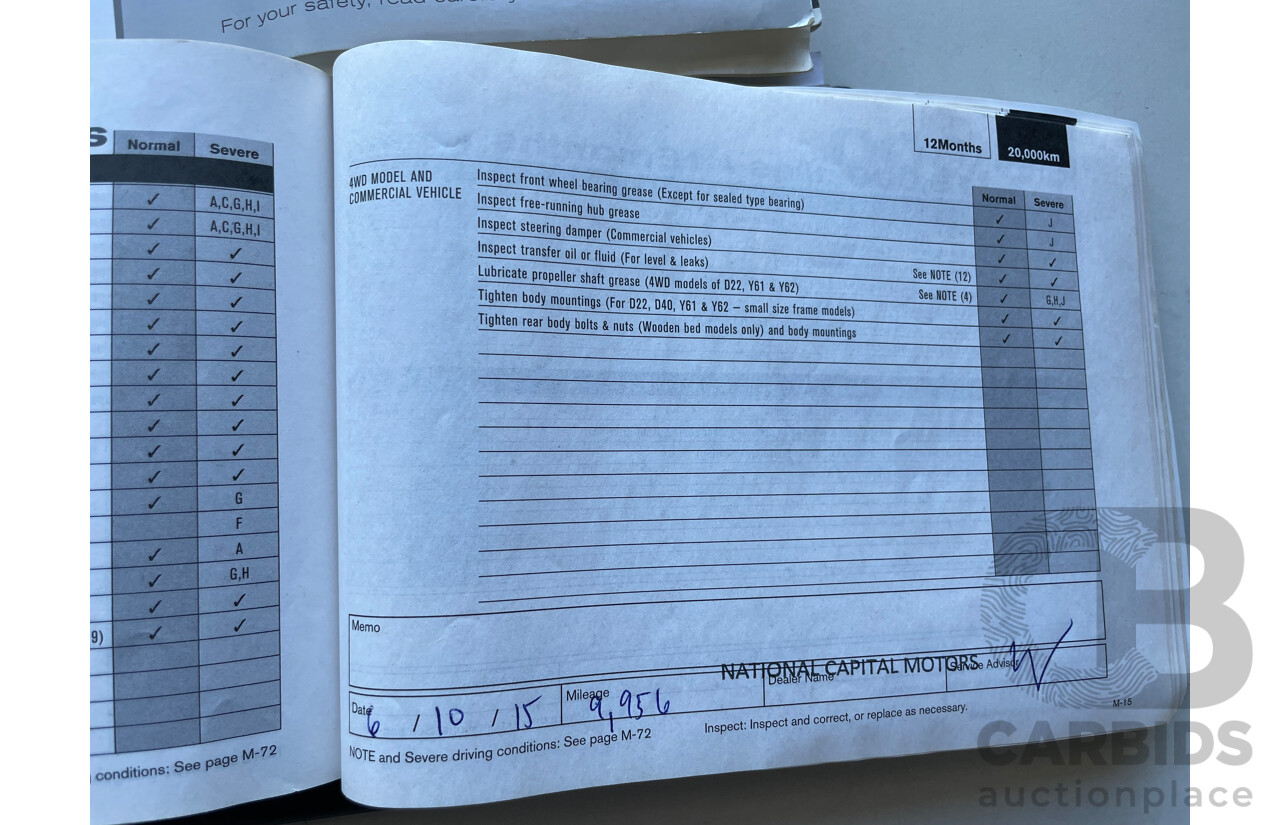 For your safety, read
S Normal Severe
✓ A,C,G,H,I
✓ A,C,G,H,I
✓ ✓
✓ ✓
✓ ✓
✓ ✓
✓ ✓
✓ ✓
✓ ✓
✓ ✓
✓ ✓
✓ ✓
✓ G
F
✓ A
✓ G,H
✓ ✓
9) ✓ ✓
conditions: See page M-72
12Months 20,000km
4WD MODEL AND
COMMERCIAL VEHICLE
Normal Severe
Inspect front wheel bearing grease (Except for sealed type bearing) ✓ J
Inspect free-running hub grease ✓ J
Inspect steering damper (Commercial vehicles) ✓ ✓
Inspect transfer oil or fluid (For level & leaks) See NOTE (12) ✓ ✓
Lubricate propeller shaft grease (4WD models of D22, Y61 & Y62) See NOTE (4) ✓ G,H,J
Tighten body mountings (For D22, D40, Y61 & Y62 – small size frame models) ✓ ✓
Tighten rear body bolts & nuts (Wooden bed models only) and body mountings ✓ ✓
Memo
NATIONAL CAPITAL MOTORS
Date 6 / 10 / 15 Mileage 9,956 Dealer Name Service Advisor
NOTE and Severe driving conditions: See page M-72 Inspect: Inspect and correct, or replace as necessary.
M-15
CB
CARBIDS
auctionplace